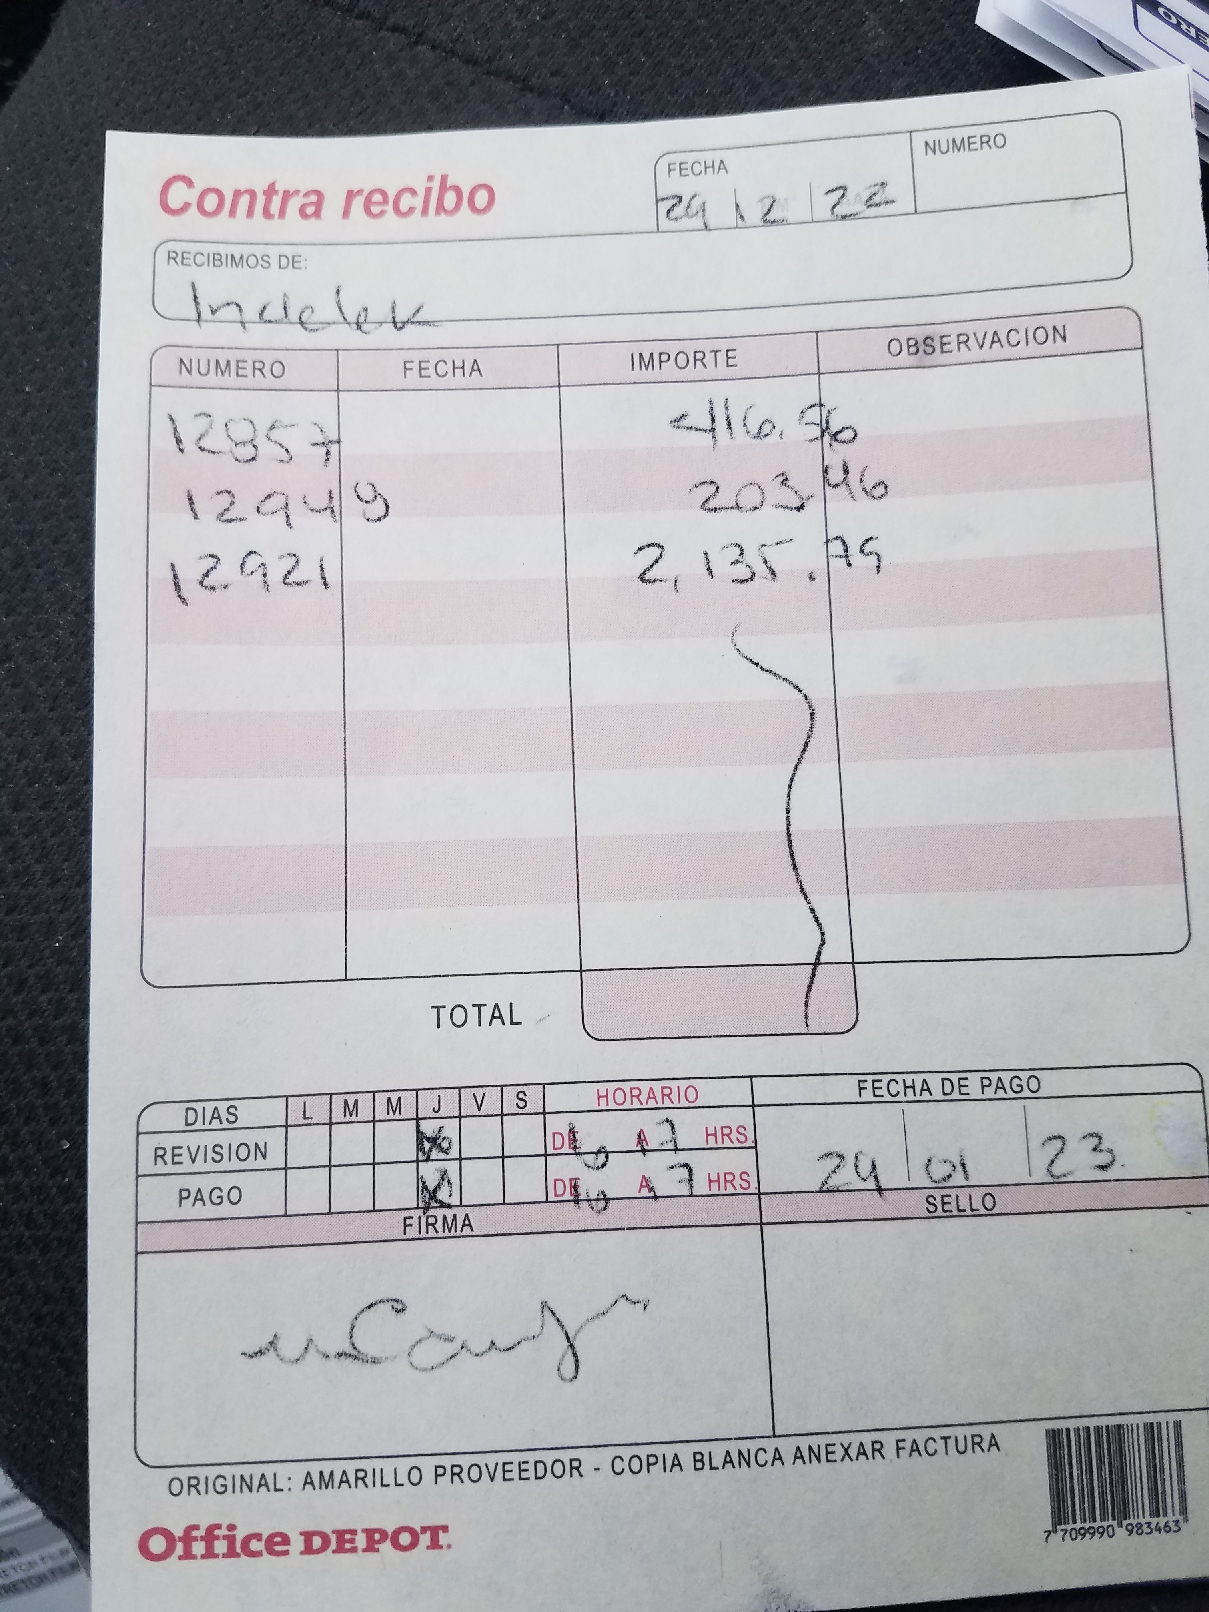 Contra recibo
FECHA
29 12 22
NUMERO
RECIBIMOS DE:
Indelek
NUMERO FECHA IMPORTE OBSERVACION
12857 416.56
12949 203.46
12921 2,135.79
TOTAL
DIAS L M M J V S HORARIO FECHA DE PAGO
REVISION X DE 6 A 7 HRS.
PAGO X DE 6 A 7 HRS
29 01 23
FIRMA SELLO
ORIGINAL: AMARILLO PROVEEDOR - COPIA BLANCA ANEXAR FACTURA
Office DEPOT.
7 709990 983463